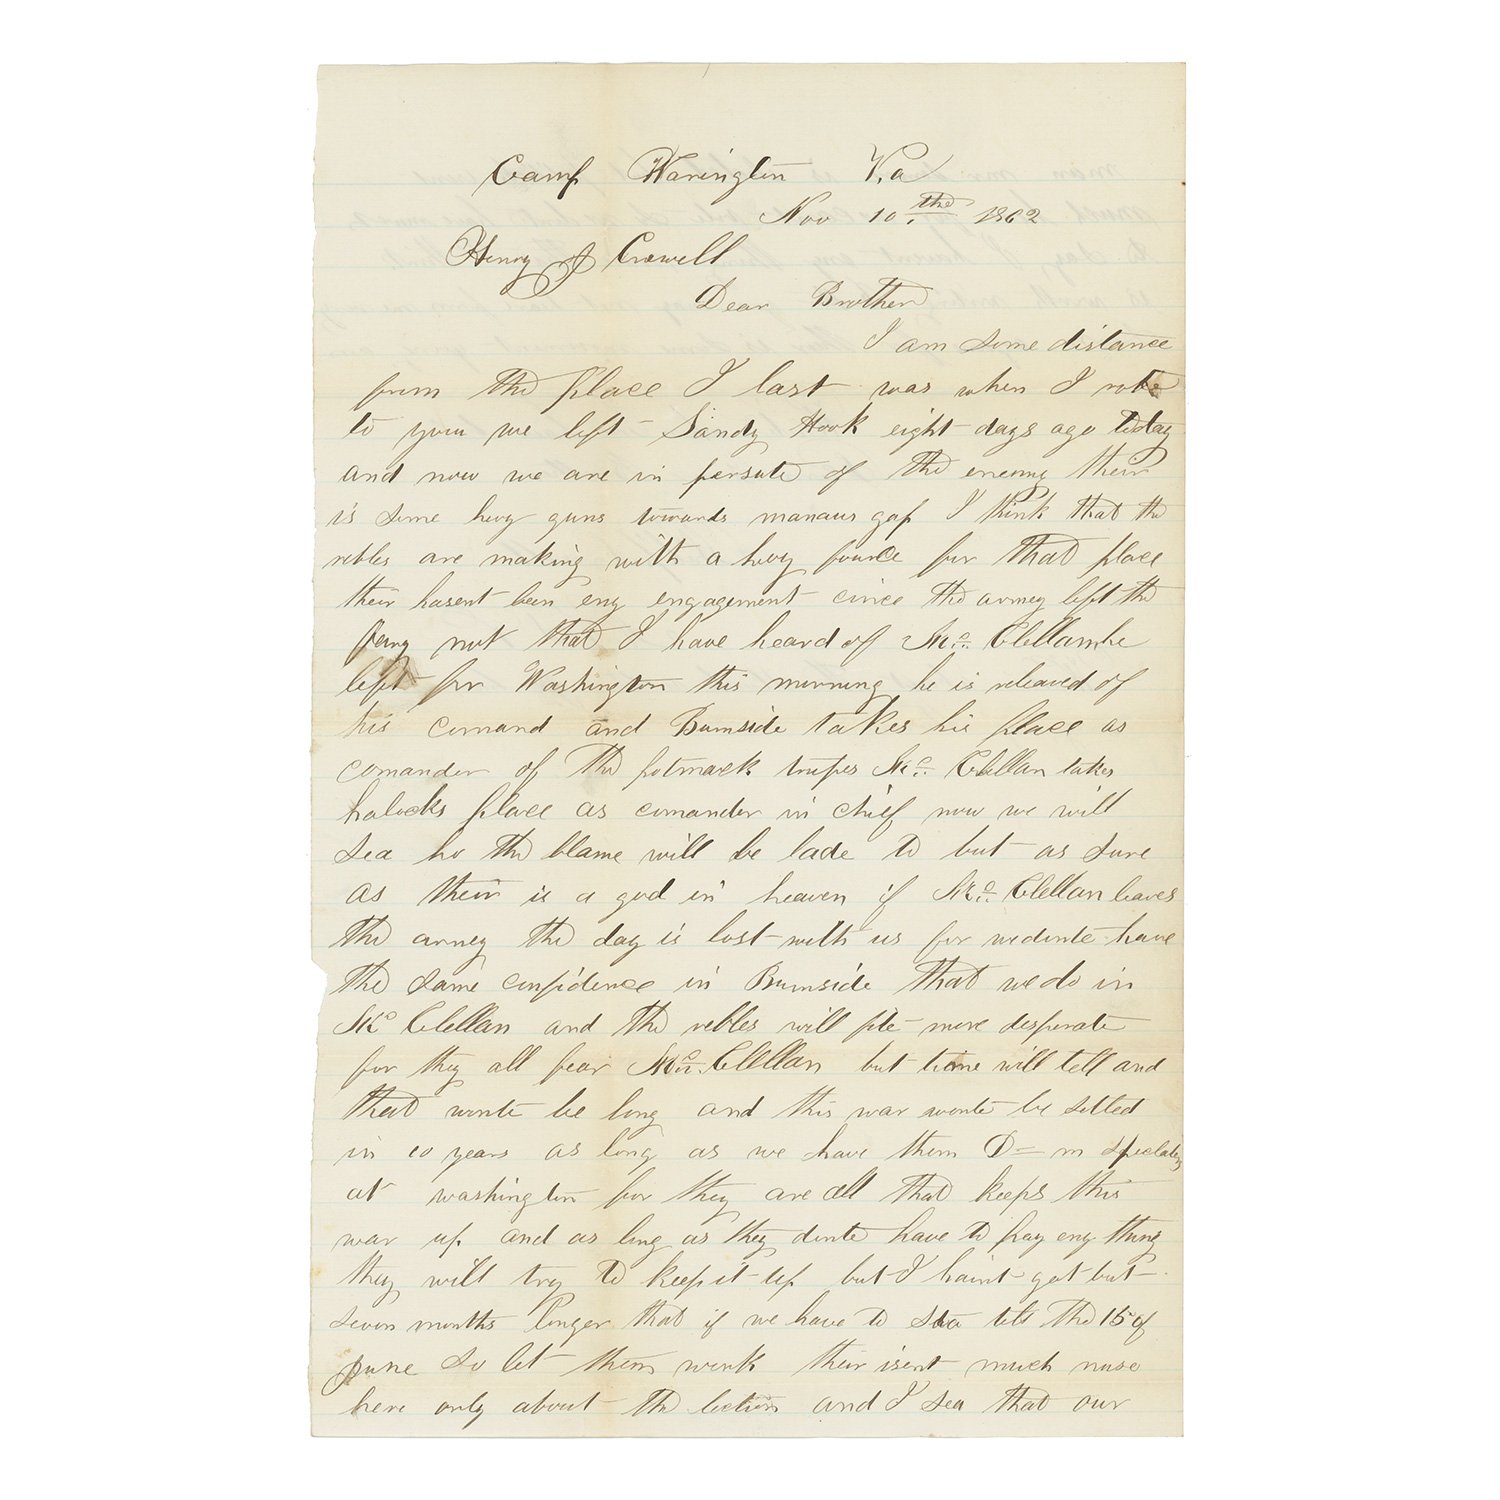 Camp Warington V.a
Nov 10 the 1862
Henry J Crowell
Dear Brother
I am some distance
from the place I last was when I rote
to you we left Sandy Hook eight days ago today
and now we are in persute of the enemy their
is some hevy guns towards manaus gap I think that the
rebles are making with a hevy fource for that place
their hasent been eny engagement cince the armey left the
fery not that I have heard of Mc. Clellan he
left for Washington this morning he is releaved of
his comand and Burnside takes his place as
comander of the potmack trupes Mc. Clellan takes
halocks place as comander in chief now we will
sea ho the blame will be lade to but as sure
as their is a god in heaven if Mc. Clellan leaves
the armey the day is lost with us for we donte have
the same confidence in Burnside that we do in
Mc Clellan and the rebles will fite more desperate
for they all fear Mc. Clellan but time will tell and
that wonte be long and this war wonte be setled
in 10 years as long as we have them D=m
at washington for they are all that keeps this
war up and as long as they donte have to pay eny thing
they will try to keep it up but I haint got but
seven months longer that if we have to sta till the 15 of
june so let them work their isent much nuse
here only about the lection and I sea that our